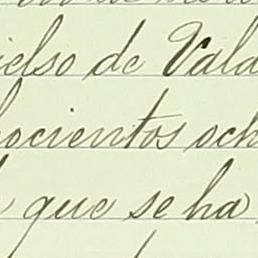 ielso de Vala
ocientos och
que se ha